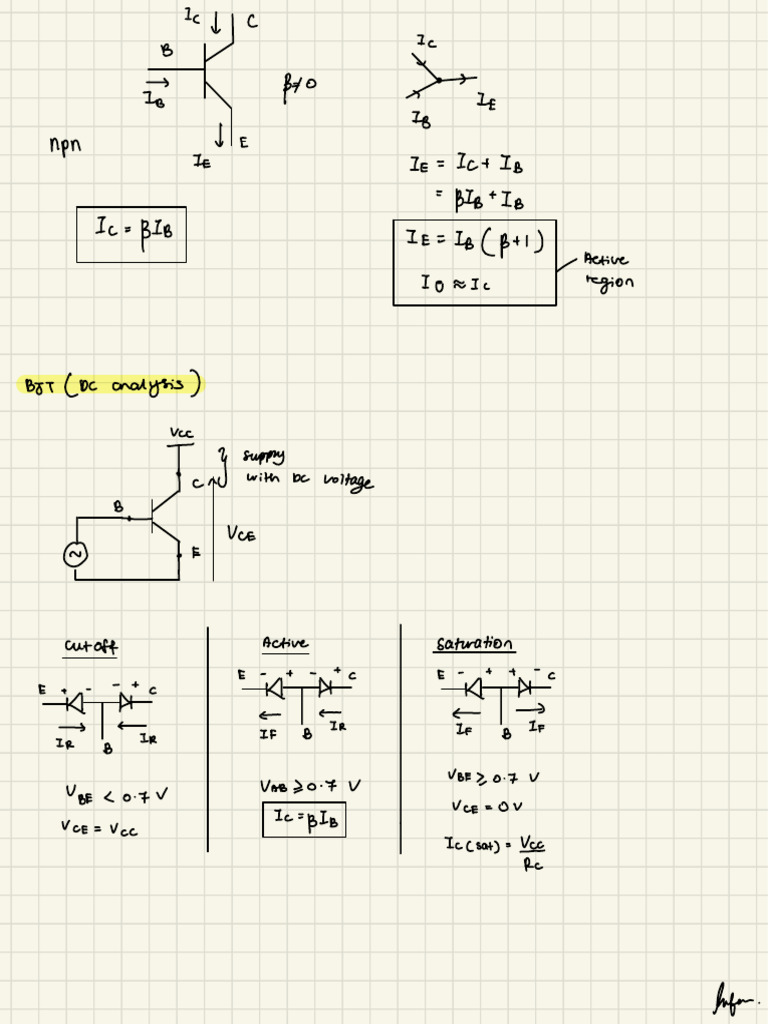 I_C ↓ C
B
→
I_B
β≠0
npn
↓ E
I_E
I_C = βI_B
I_C
I_E
I_B
I_E = I_C + I_B
= βI_B + I_B
I_E = I_B (β+1)
I_0 ≈ I_C
Active
region
BJT (DC analysis)
Vcc
supply
C with DC voltage
B
V_CE
~ E
Cutoff
E + - - + C
I_R B I_R
V_BE < 0.7 V
V_CE = V_CC
Active
E - + - + C
I_F B I_R
V_AB ≥ 0.7 V
I_C = βI_B
Saturation
E - + + - C
I_F B I_F
V_BE ≥ 0.7 V
V_CE = 0V
I_C (sat) = V_CC
R_C